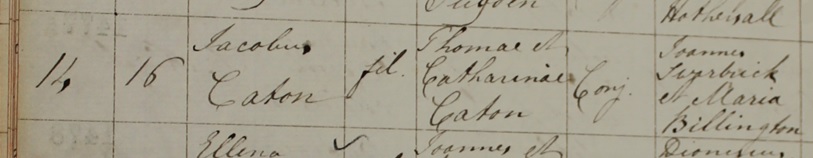 Hothersall
14 16 Jacobus Caton fil. Thomae et Catharinae Caton Conj. Joannes Swarbrick et Maria Billington
Ellena Joannes et Dionisius